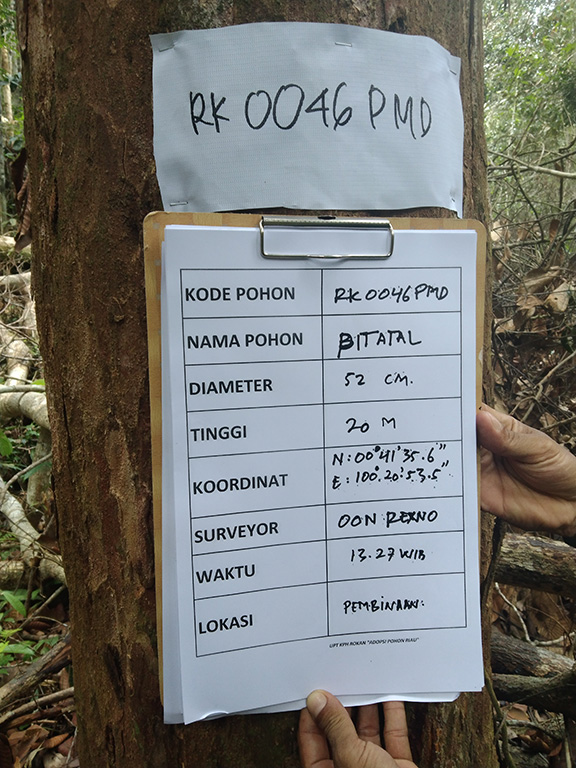 RK 0046 PMD
KODE POHON RK 0046 PMD
NAMA POHON BITATAL
DIAMETER 52 CM.
TINGGI 20 M
KOORDINAT N: 00° 41' 35.6"
E: 100°. 20' 53.5"
SURVEYOR OON REKNO
WAKTU 13.27 WIB
LOKASI PEMBINAAN.
UPT KPH ROKAN "ADOPSI POHON RIAU"